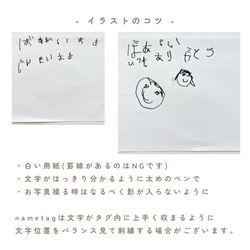 - イラストのコツ -
ばあい
・白い用紙(罫線があるのはNGです)
・文字がはっきり分かるように太めのペンで
・お写真撮る時はなるべく影が入らないように
nametagは文字がタグ内に上手く収まるように
文字位置をバランス見て刺繍する場合がございます。